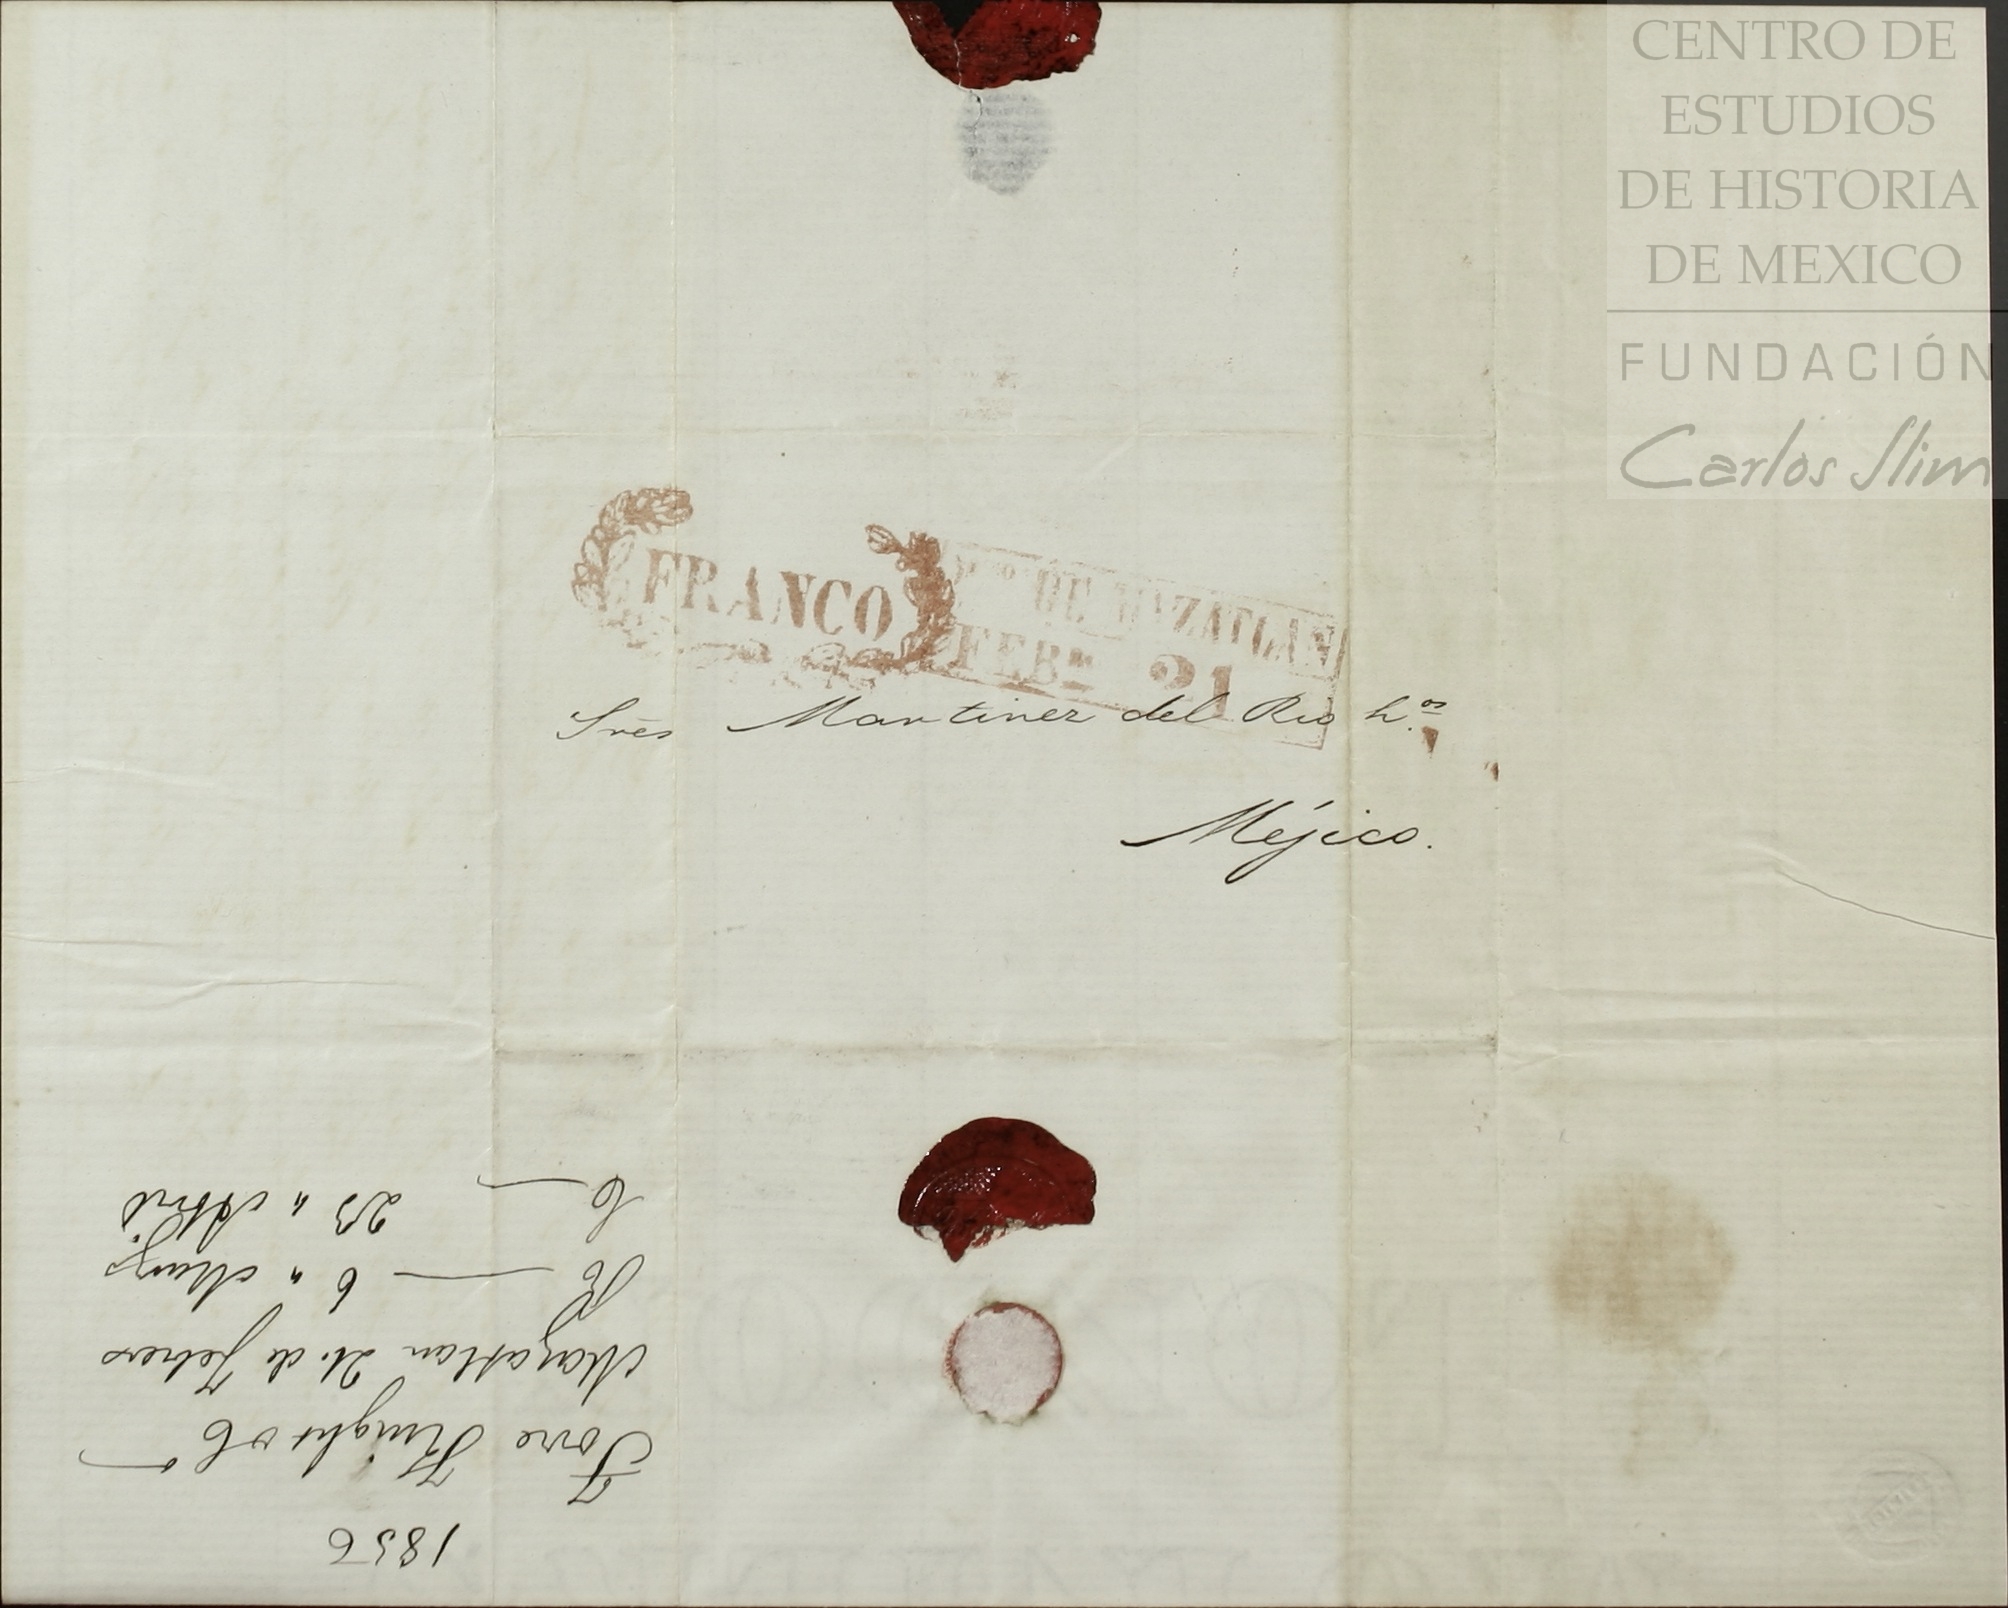 CENTRO DE
ESTUDIOS
DE HISTORIA
DE MEXICO
FUNDACIÓN
Carlos Slim
FRANCO
DE MAZATLAN
FEBº 21
Sres Martinez del Rio h.os
Méjico.
1856
Torre Knight
Mazatlan 21. de Febrero
R 6 " Marzo
C 23 " Abril